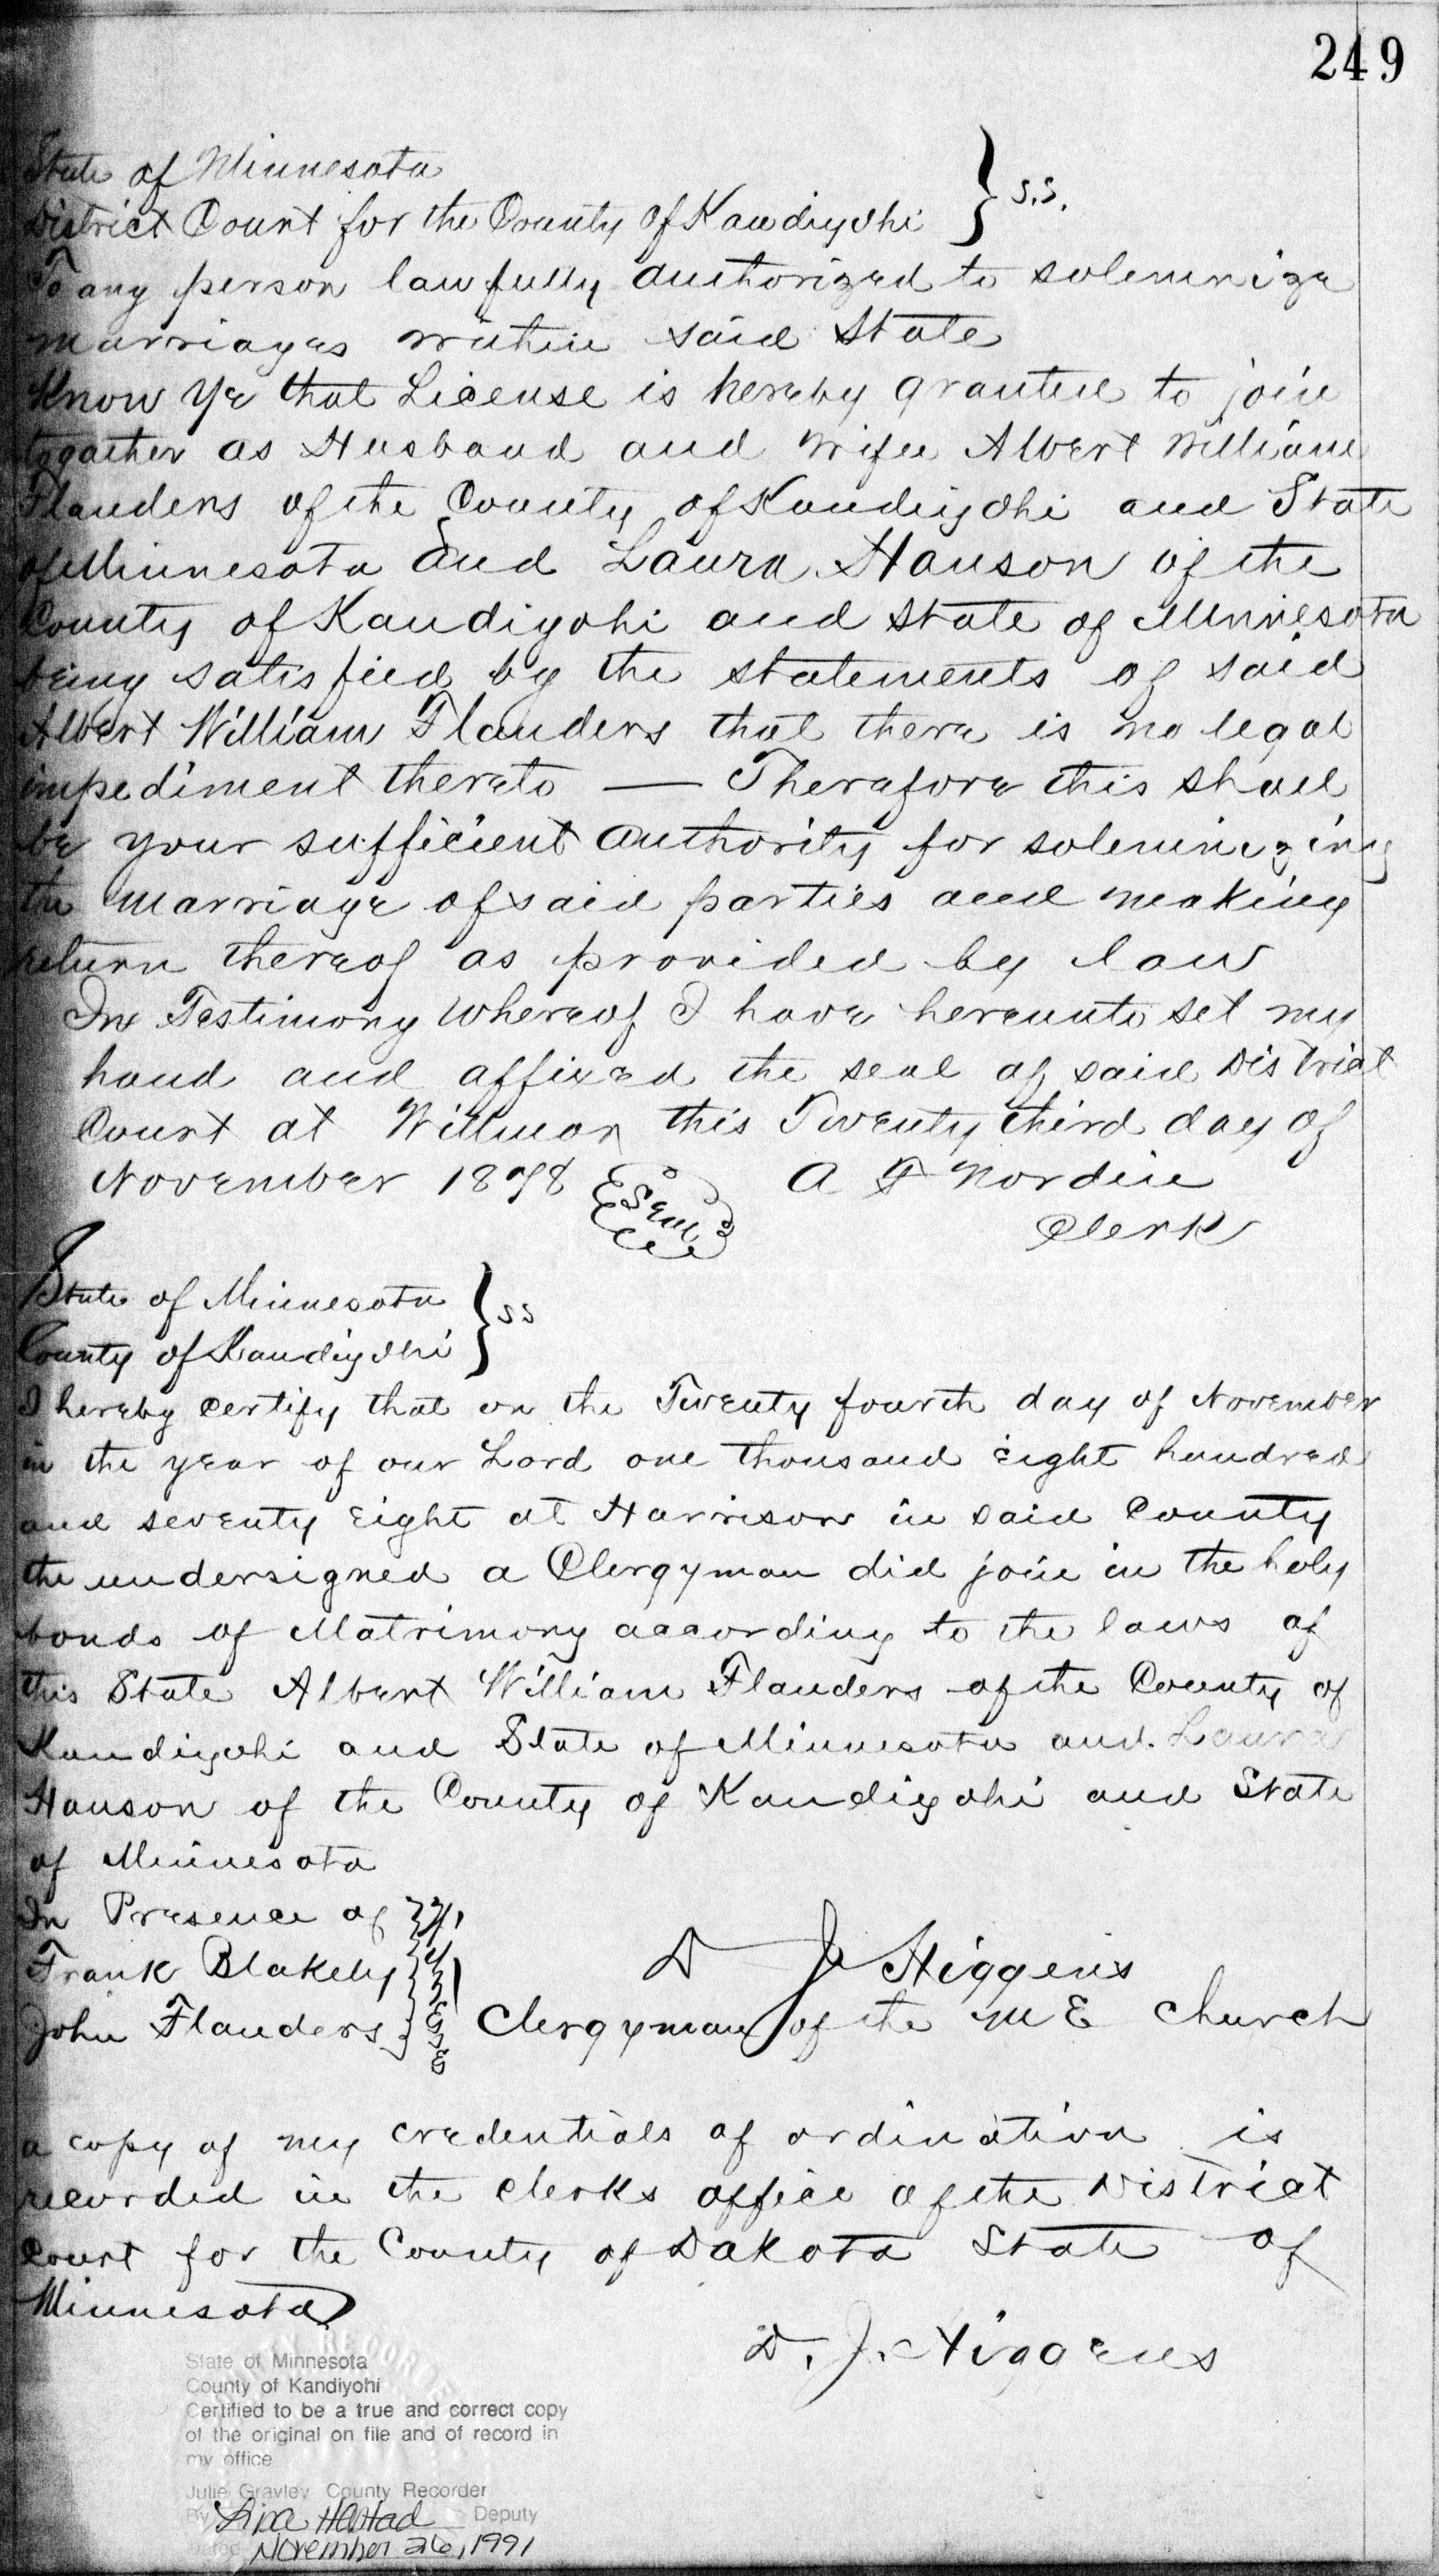 249
State of Minnesota
District Court for the County of Kandiyohi } S.S.
To any person lawfully authorized to solemnize
marriages within said State
Know Ye that License is hereby granted to join
together as Husband and Wife Albert William
Flanders of the County of Kandiyohi and State
of Minnesota And Laura Hanson of the
County of Kandiyohi and State of Minnesota
being satisfied by the statements of said
Albert William Flanders that there is no legal
impediment thereto — Therefore this shall
be your sufficient authority for solemnizing
the marriage of said parties and making
return thereof as provided by law
In Testimony Whereof I have hereunto set my
hand and affixed the seal of said District
Court at Willmar this Twenty third day of
November 1878 Seal A F Nordin
Clerk
State of Minnesota
County of Kandiyohi } SS
I hereby certify that on the Twenty fourth day of November
in the year of our Lord one thousand eight hundred
and seventy eight at Harrison in said County
the undersigned a Clergyman did join in the holy
bonds of Matrimony according to the laws of
this State Albert William Flanders of the County of
Kandiyohi and State of Minnesota and Laura
Hanson of the County of Kandiyohi and State
of Minnesota
In Presence of
Frank Blakely
John Flanders
D J Higgins
Clergyman of the M E Church
a copy of my credentials of ordination is
recorded in the clerks office of the District
Court for the County of Dakota State of
Minnesota
D. J. Higgens
State of Minnesota
County of Kandiyohi
Certified to be a true and correct copy
of the original on file and of record in
my office
Julie Gravley County Recorder
By Deputy
Dated November 26, 1991